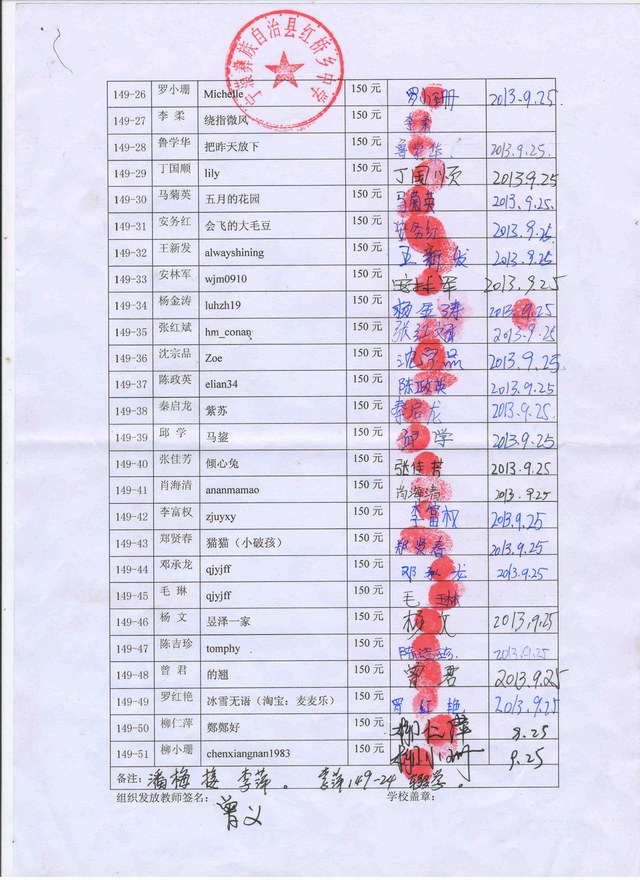 宁蒗彝族自治县红桥乡中学
149-26 罗小珊 Michelle 150 元 罗小珊 2013.9.25
149-27 李 柔 绕指微风 150 元 李柔
149-28 鲁学华 把昨天放下 150 元 鲁学华 2013.9.25.
149-29 丁国顺 lily 150 元 丁国顺 2013.9.25
149-30 马菊英 五月的花园 150 元 马菊英 2013.9.25.
149-31 安务红 会飞的大毛豆 150 元 安务红 2013.9.25
149-32 王新发 alwayshining 150 元 王新发 2013.9.25
149-33 安林军 wjm0910 150 元 安林军 2013.9.25
149-34 杨金涛 luhzh19 150 元 杨金涛 2013.9.25
149-35 张红斌 hm_conan 150 元 张红斌 2013.9.25
149-36 沈宗品 Zoe 150 元 沈宗品 2013.9.25
149-37 陈政英 elian34 150 元 陈政英 2013.9.25
149-38 秦启龙 紫苏 150 元 秦启龙 2013.9.25.
149-39 邱 学 马鋆 150 元 邱学 2013.9.25
149-40 张佳芳 倾心兔 150 元 张佳芳 2013.9.25
149-41 肖海清 ananmamao 150 元 肖海清 2013.9.25
149-42 李富权 zjuyxy 150 元 李富权 2013.9.25
149-43 郑贤春 猫猫（小破孩） 150 元 郑贤春 2013.9.25
149-44 邓承龙 qjyjff 150 元 邓承龙 2013.9.25
149-45 毛 琳 qjyjff 150 元 毛琳
149-46 杨 文 昱泽一家 150 元 杨文 2013.9.25
149-47 陈吉珍 tomphy 150 元 陈吉珍 2013.9.25
149-48 曾 君 的翘 150 元 曾君 2013.9.25
149-49 罗红艳 冰雪无语（淘宝：麦麦乐） 150 元 罗红艳 2013.9.25
149-50 柳仁萍 鄭鄭好 150 元 柳仁萍 9.25
149-51 柳小珊 chenxiangnan1983 150 元 柳小珊 9.25
备注：潘梅 接 李萍。 李萍149-24 学。
组织发放教师签名： 学校盖章：
曾义